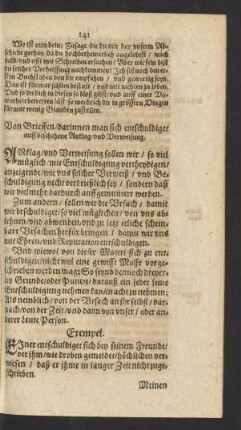 141
Wo ist nun dein: Zusage die du mir bey unserm Ab-
schiedt gethan/da du dich so theuer
bald/und offt mit Schreiben ersuchen? Aber wie sein bist
du solcher Verheissung nachkommen? Ich sol noch den er-
sten Buchstaben von dir empfahen / und gewertig seyn.
Das ist für war selten bedacht / und mit nichten zu loben.
Und so du dich in diesen so bloß gibst / und auff einer Un-
warheit betretten läst/so werd ich dir in grössern Dingen
für war wenig Glauben zustellen.
Von Brieffen/darinnen man sich entschuldiget
auff beschehene Anklag und Verweisung.
ANklag/und Verweisung sollen wir / so viel
müglich/mit Entschuldigung vertheydigen/
anzeigende/wie uns solcher Verweiß / und Be-
schuldigung nicht verdrießlich sey / sondern daß
wir viel mehr dardurch auffgemuntert werden.
Zum andern / sollen wir die Ursach / damit
wir beschuldiget/so viel müglichen/ von uns ab-
lehnen/und abwenden/oder je zu letzt etliche schein-
bare Ursachen herfür bringen / damit wir uns
mit Ehren/und Reputation entschuldigen.
Weil wiewol von dieser Materi sich zu ent-
schuldigen/nicht wol eine gewisse Masse vorge-
schrieben werden mag: So seynd dennoch dreyer-
ley Gründe/oder Puncta/darauß ein jeder seine
Entschuldigung nehmen kan/in acht zu nehmen:
Als nemblich/von der Ursach an jhr selbst/dar-
nach/von der Zeit/und dann von unser / oder an-
derer Leute Person.
Exempel.
EIner entschuldiget sich bey seinem Freunde/
der jhm/wie droben gemeldet/höchlichen ver-
wiesen / daß er jhme in langer Zeit nicht zuge-
schrieben.
Meinen